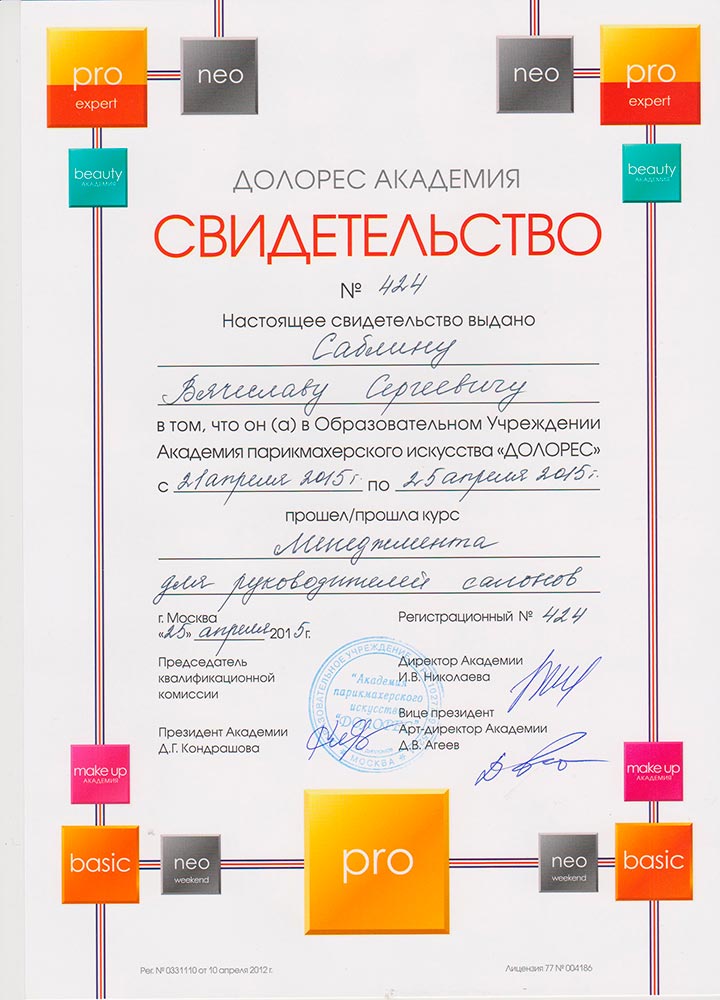 pro
expert
neo
neo
pro
expert
beauty
АКАДЕМИЯ
beauty
АКАДЕМИЯ
ДОЛОРЕС АКАДЕМИЯ
СВИДЕТЕЛЬСТВО
№ 424
Настоящее свидетельство выдано
Саблину
Вячеславу Сергеевичу
в том, что он (а) в Образовательном Учреждении
Академия парикмахерского искусства «ДОЛОРЕС»
с 21 апреля 2015 г. по 25 апреля 2015 г.
прошел/прошла курс
Менеджмента
для руководителей салонов
г. Москва
«25» апреля 2015г.
Регистрационный № 424
Председатель
квалификационной
комиссии
Президент Академии
Д.Г. Кондрашова
Директор Академии
И.В. Николаева
Вице президент
Арт-директор Академии
Д.В. Агеев
"Академия
парикмахерского
искусства
"ДОЛОРЕС"
МОСКВА
make up
АКАДЕМИЯ
make up
АКАДЕМИЯ
basic
neo
weekend
pro
neo
weekend
basic
Рег. № 0331110 от 10 апреля 2012 г.
Лицензия 77 № 004186